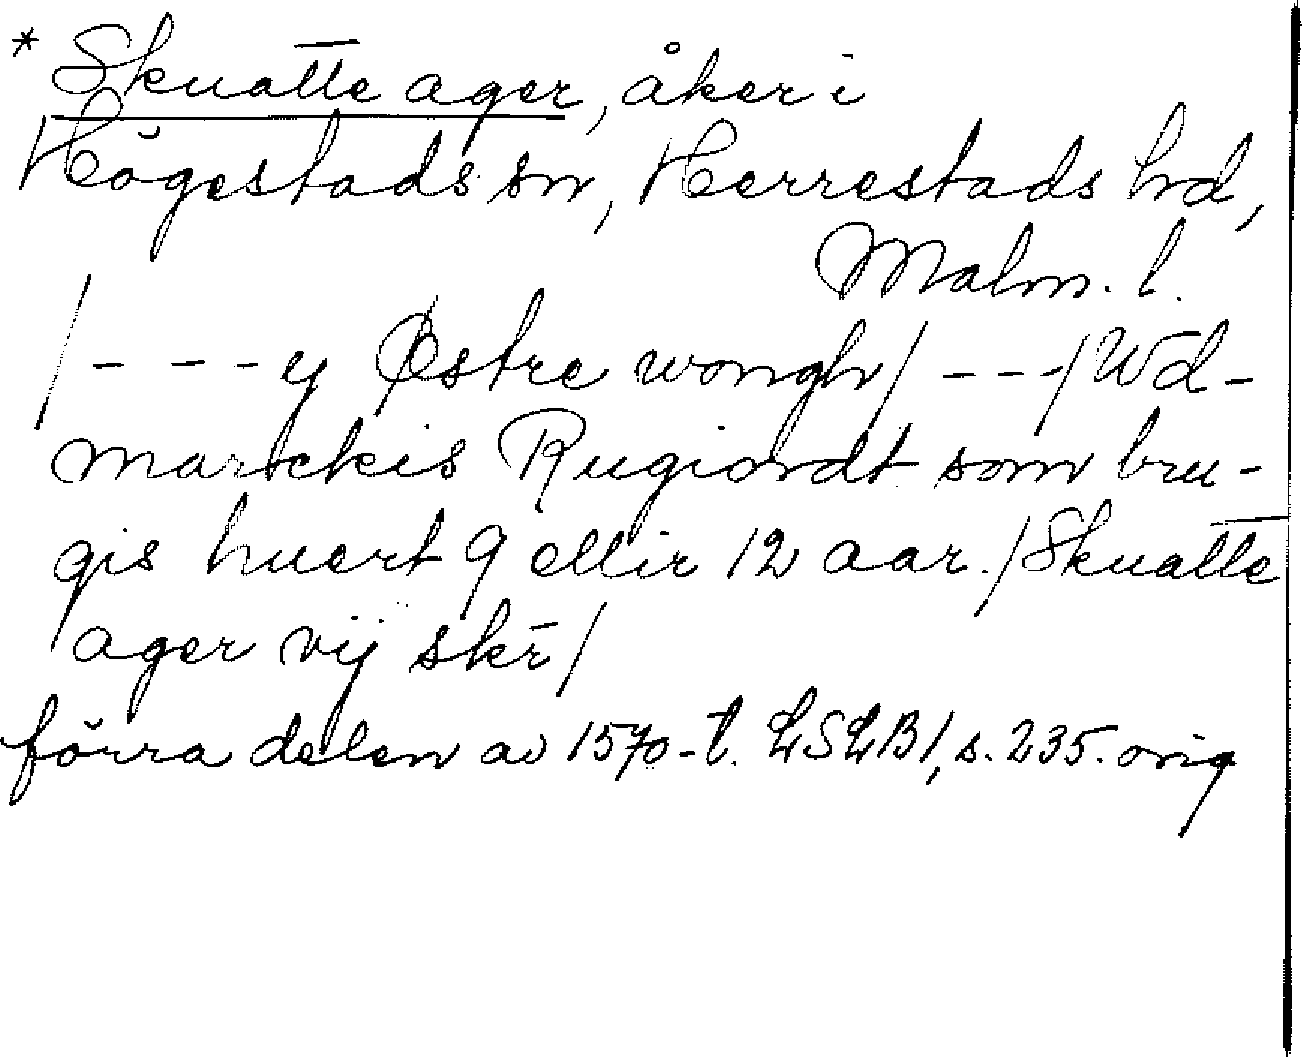 * Skuatte ager, åker i
Högestads sn, Herrestads hd,
Malm. l.
/ - - - y Østre wongh / - - - / Wd-
marckis Rugiordt som bru-
gis huert 9 ellir 12 aar. / Skuatte
ager vij skr̄ /
förra delen av 1570-t. LSLB1, s. 235. orig